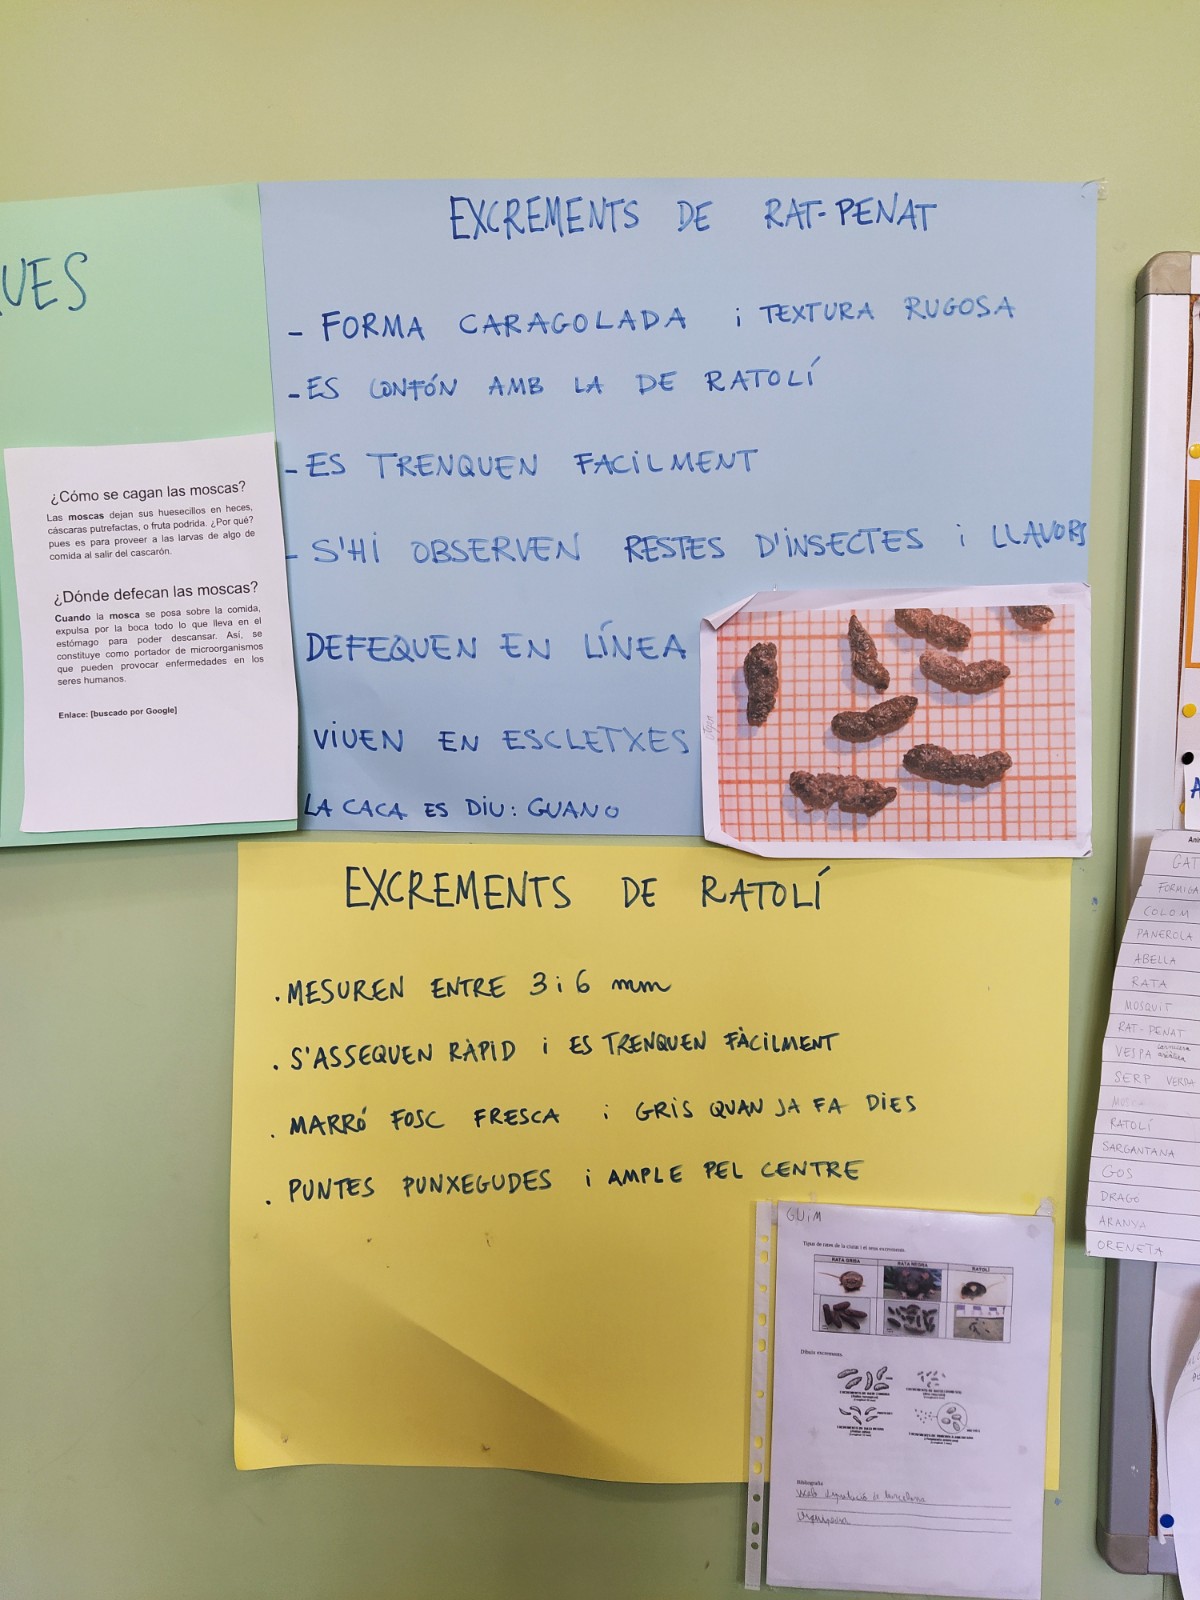 UES
¿Cómo se cagan las moscas?
Las moscas dejan sus huesecillos en heces,
cáscaras putrefactas, o fruta podrida. ¿Por qué?
pues es para proveer a las larvas de algo de
comida al salir del cascarón.
¿Dónde defecan las moscas?
Cuando la mosca se posa sobre la comida,
expulsa por la boca todo lo que lleva en el
estómago para poder descansar. Así, se
constituye como portador de microorganismos
que pueden provocar enfermedades en los
seres humanos.
Enlace: [buscado por Google]
EXCREMENTS DE RAT-PENAT
- FORMA CARAGOLADA i TEXTURA RUGOSA
- ES CONFÓN AMB LA DE RATOLÍ
- ES TRENQUEN FACILMENT
- S'HI OBSERVEN RESTES D'INSECTES i LLAVORS
DEFEQUEN EN LÍNEA
VIUEN EN ESCLETXES
LA CACA ES DIU: GUANO
EXCREMENTS DE RATOLÍ
. MESUREN ENTRE 3 i 6 mm
. S'ASSEQUEN RÀPID i ES TRENQUEN FÀCILMENT
. MARRÓ FOSC FRESCA i GRIS QUAN JA FA DIES
. PUNTES PUNXEGUDES i AMPLE PEL CENTRE
GUIM
Tipus de rates de la ciutat i el seus excrements.
RATA GRISA RATA NEGRA RATOLÍ
Dibuix excrements.
Bibliografia
GAT
FORMIGA
COLOM
PANEROLA
ABELLA
RATA
MOSQUIT
RAT-PENAT
VESPA
SERP VERDA
MOSCA
RATOLÍ
SARGANTANA
GOS
DRAGO
ARANYA
ORENETA